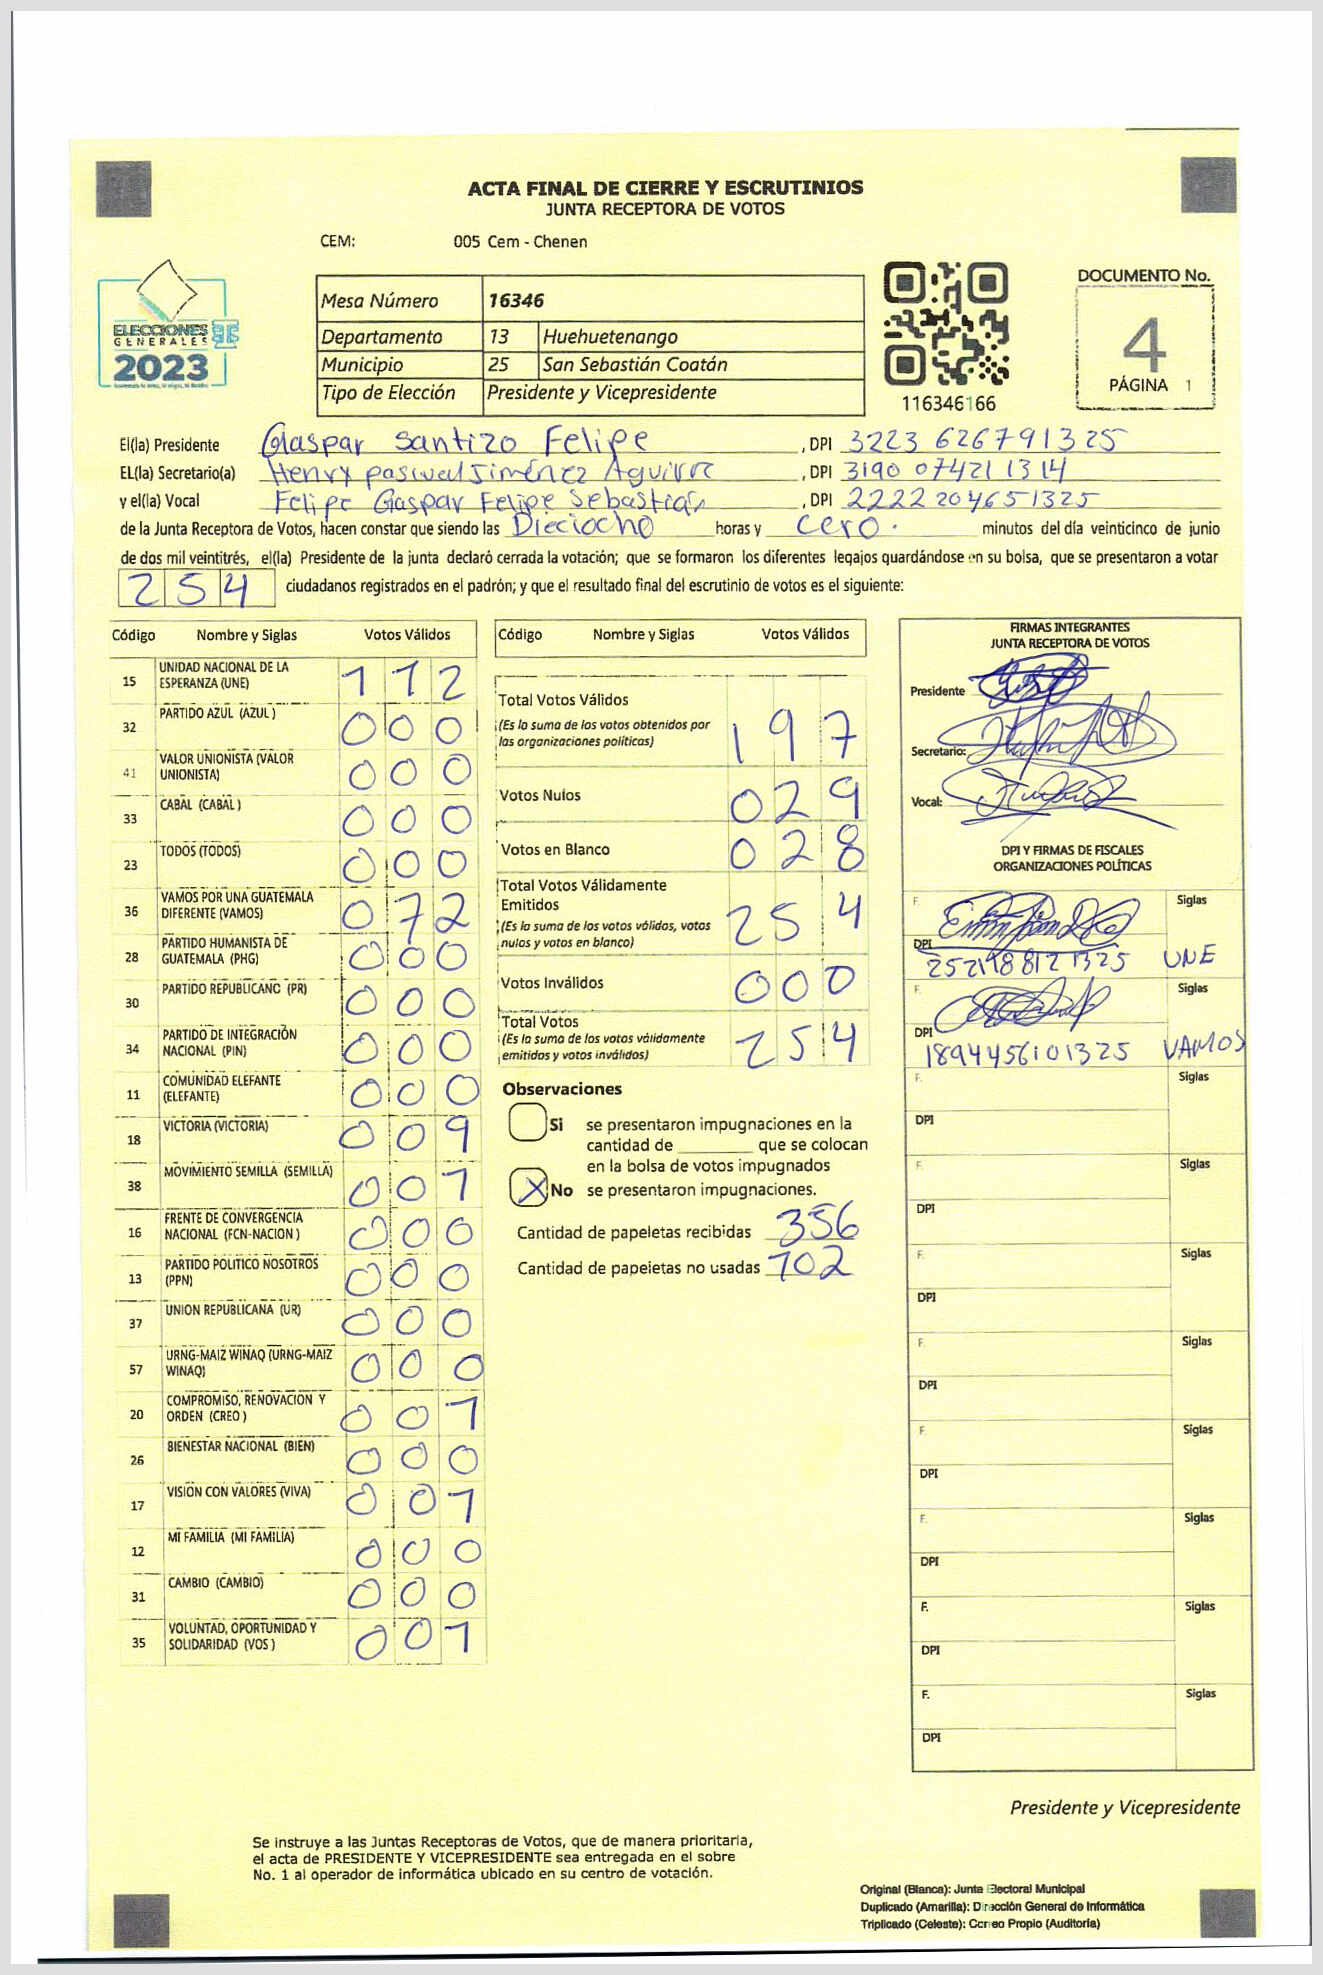 ACTA FINAL DE CIERRE Y ESCRUTINIOS
JUNTA RECEPTORA DE VOTOS
CEM: 005 Cem - Chenen
ELECCIONES
GENERALES
2023
Mesa Número 16346
Departamento 13 Huehuetenango
Municipio 25 San Sebastián Coatán
Tipo de Elección Presidente y Vicepresidente
116346166
DOCUMENTO No.
4
PÁGINA 1
El(la) Presidente Gaspar Santizo Felipe , DPI 3223 626791325
EL(la) Secretario(a) Henry pascual Jiménez Aguirre , DPI 3190 07421 1314
y el(la) Vocal Felipe Gaspar Felipe Sebastián , DPI 2222204651325
de la Junta Receptora de Votos, hacen constar que siendo las Dieciocho horas y cero. minutos del día veinticinco de junio
de dos mil veintitrés, el(la) Presidente de la junta declaró cerrada la votación; que se formaron los diferentes legajos guardándose en su bolsa, que se presentaron a votar
254 ciudadanos registrados en el padrón; y que el resultado final del escrutinio de votos es el siguiente:
Código Nombre y Siglas Votos Válidos
15 UNIDAD NACIONAL DE LA ESPERANZA (UNE) 112
32 PARTIDO AZUL (AZUL) 000
41 VALOR UNIONISTA (VALOR UNIONISTA) 000
33 CABAL (CABAL) 000
23 TODOS (TODOS) 000
36 VAMOS POR UNA GUATEMALA DIFERENTE (VAMOS) 072
28 PARTIDO HUMANISTA DE GUATEMALA (PHG) 000
30 PARTIDO REPUBLICANO (PR) 000
34 PARTIDO DE INTEGRACIÓN NACIONAL (PIN) 000
11 COMUNIDAD ELEFANTE (ELEFANTE) 000
18 VICTORIA (VICTORIA) 009
38 MOVIMIENTO SEMILLA (SEMILLA) 001
16 FRENTE DE CONVERGENCIA NACIONAL (FCN-NACION) 000
13 PARTIDO POLITICO NOSOTROS (PPN) 000
37 UNION REPUBLICANA (UR) 000
57 URNG-MAIZ WINAQ (URNG-MAIZ WINAQ) 000
20 COMPROMISO, RENOVACION Y ORDEN (CREO) 001
26 BIENESTAR NACIONAL (BIEN) 000
17 VISION CON VALORES (VIVA) 001
12 MI FAMILIA (MI FAMILIA) 000
31 CAMBIO (CAMBIO) 000
35 VOLUNTAD, OPORTUNIDAD Y SOLIDARIDAD (VOS) 001
Código Nombre y Siglas Votos Válidos
Total Votos Válidos 197
(Es la suma de los votos obtenidos por
las organizaciones políticas)
Votos Nulos 029
Votos en Blanco 028
Total Votos Válidamente
Emitidos 254
(Es la suma de los votos válidos, votos
nulos y votos en blanco)
Votos Inválidos 000
Total Votos 254
(Es la suma de los votos válidamente
emitidos y votos inválidos)
Observaciones
Si se presentaron impugnaciones en la
cantidad de ________ que se colocan
en la bolsa de votos impugnados
X No se presentaron impugnaciones.
Cantidad de papeletas recibidas 356
Cantidad de papeletas no usadas 102
FIRMAS INTEGRANTES
JUNTA RECEPTORA DE VOTOS
Presidente
Secretario:
Vocal:
DPI Y FIRMAS DE FISCALES
ORGANIZACIONES POLÍTICAS
F. Siglas
DPI 252118812 1325 UNE
F. Siglas
DPI 1894456101325 VAMOS
F. Siglas
DPI
F. Siglas
DPI
F. Siglas
DPI
F. Siglas
DPI
F. Siglas
DPI
F. Siglas
DPI
F. Siglas
DPI
F. Siglas
DPI
Presidente y Vicepresidente
Se instruye a las Juntas Receptoras de Votos, que de manera prioritaria,
el acta de PRESIDENTE Y VICEPRESIDENTE sea entregada en el sobre
No. 1 al operador de informática ubicado en su centro de votación.
Original (Blanca): Junta Electoral Municipal
Duplicado (Amarilla): Dirección General de Informática
Triplicado (Celeste): Correo Propio (Auditoría)